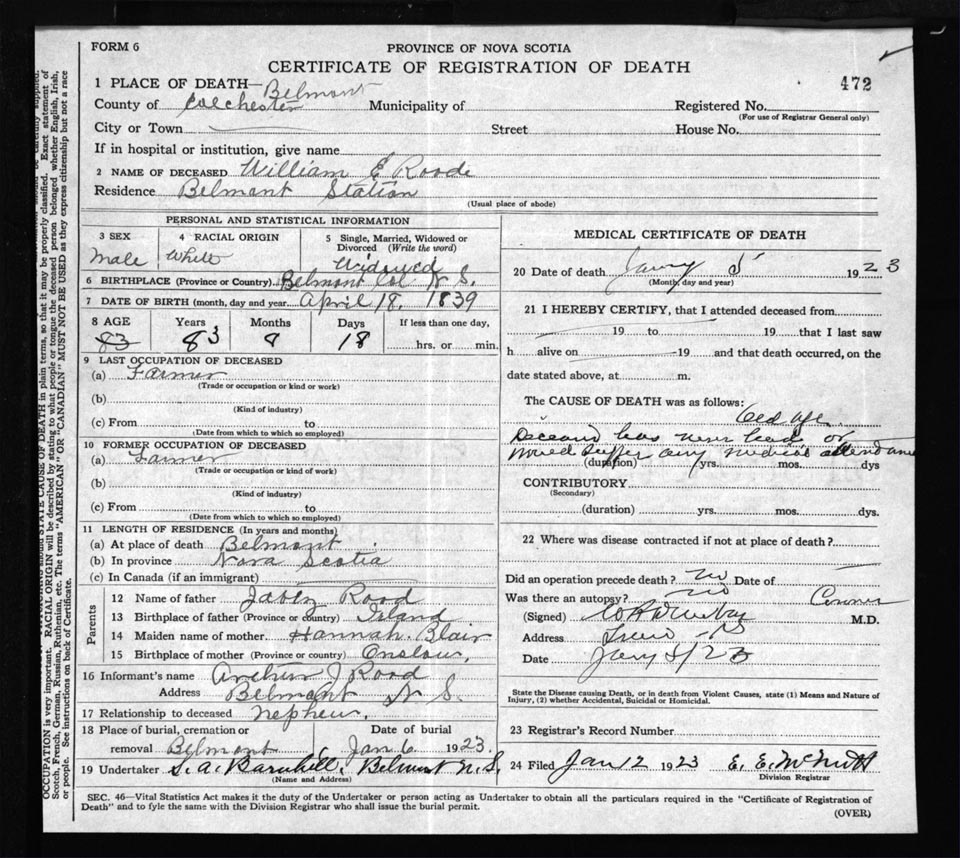 FORM 6
PROVINCE OF NOVA SCOTIA
CERTIFICATE OF REGISTRATION OF DEATH
472
1 PLACE OF DEATH— Belmont
County of Colchester Municipality of Registered No.
(For use of Registrar General only)
City or Town Street House No.
If in hospital or institution, give name
2 NAME OF DECEASED William E Roode
Residence Belmont Station
(Usual place of abode)
PERSONAL AND STATISTICAL INFORMATION
3 SEX 4 RACIAL ORIGIN 5 Single, Married, Widowed or
Divorced (Write the word)
Male White Widowed
6 BIRTHPLACE (Province or Country) Belmont Col N S.
7 DATE OF BIRTH (month, day and year April 18. 1839
8 AGE Years Months Days If less than one day,
83 83 8 18 hrs. or min.
9 LAST OCCUPATION OF DECEASED
(a) Farmer
(Trade or occupation or kind or work)
(b)
(Kind of industry)
(c) From to
(Date from which to which so employed)
10 FORMER OCCUPATION OF DECEASED
(a) Farmer
(Trade or occupation or kind of work)
(b)
(Kind of industry)
(c) From to
(Date from which to which so employed)
11 LENGTH OF RESIDENCE (In years and months)
(a) At place of death Belmont
(b) In province Nova Scotia
(c) In Canada (if an immigrant)
Parents
12 Name of father Jabez Rood
13 Birthplace of father (Province or country) Island
14 Maiden name of mother Hannah Blair
15 Birthplace of mother (Province or country) Onslow,
16 Informant's name Arthur J Rood
Address Belmont N S.
17 Relationship to deceased nephew.
18 Place of burial, cremation or Date of burial
removal Belmont Jan 6 1923.
19 Undertaker S. A. Barnhill. Belmont N.S.
(Name and Address)
MEDICAL CERTIFICATE OF DEATH
20 Date of death Janry 5 1923
(Month, day and year)
21 I HEREBY CERTIFY, that I attended deceased from
19 to 19 that I last saw
h alive on 19 and that death occurred, on the
date stated above, at m.
The CAUSE OF DEATH was as follows:
Old age
Deceased has never had or
would suffer any medical attendance
(duration) yrs. mos. dys
CONTRIBUTORY
(Secondary)
(duration) yrs. mos. dys.
22 Where was disease contracted if not at place of death?
Did an operation precede death? no Date of
Was there an autopsy? no
(Signed) Coroner M.D.
Address
Date Jany 5/23
State the Disease causing Death, or in death from Violent Causes, state (1) Means and Nature of
Injury, (2) whether Accidental, Suicidal or Homicidal.
23 Registrar's Record Number
24 Filed Jan 12 1923 E. E. McNutt
Division Registrar
SEC. 46—Vital Statistics Act makes it the duty of the Undertaker or person acting as Undertaker to obtain all the particulars required in the "Certificate of Registration of
Death" and to fyle the same with the Division Registrar who shall issue the burial permit.
(OVER)
STATE CAUSE OF DEATH in plain terms, so that it may be properly classified. Exact statement of
OCCUPATION is very important. RACIAL ORIGIN will be described by stating to what people or tongue the deceased person belonged whether English, Irish,
Scotch, French, German, Russian, Ruthenian, etc. The terms "AMERICAN" OR "CANADIAN" MUST NOT BE USED as they express citizenship but not a race
or people. See instructions on back of Certificate.